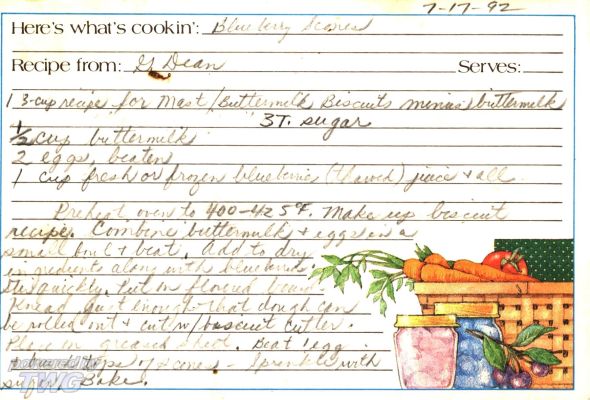 7-17-92
Here's what's cookin': Blueberry Scones
Recipe from: G Dean Serves:
1 3-cup recipe for Mast/Buttermilk Biscuits minus buttermilk
3T. sugar
1/2 cup buttermilk
2 eggs, beaten
1 cup fresh or frozen blueberries (thawed) juice & all.
Preheat oven to 400-425°F. Make up biscuit
recipe. Combine buttermilk & eggs in a
small bowl & beat. Add to dry
ingredients along with blueberries.
Stir quickly. Put on floured board
Knead just enough that dough can
be rolled out & cut w/ biscuit cutter.
Place on greased sheet. Beat 1 egg
& brush tops of scones - Sprinkle with
sugar. Bake.
TWG